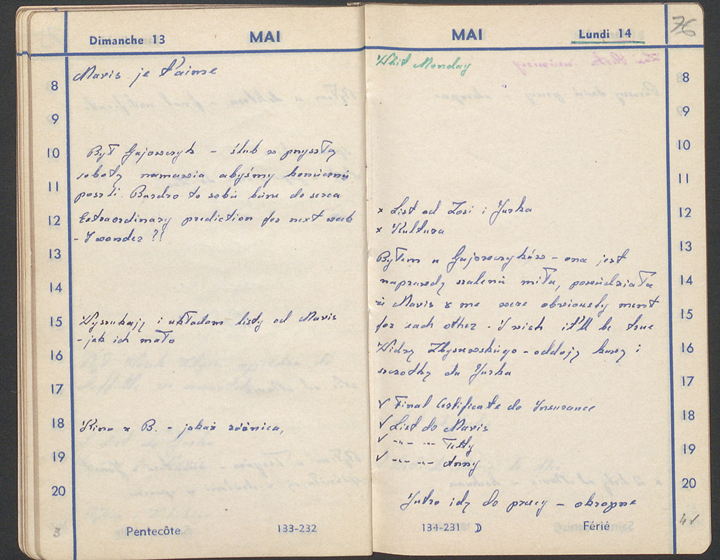 Dimanche 13 MAI
8
9
10
11
12
13
14
15
16
17
18
19
20
Mavis je t'aime
Był Gajowczyk - ślub w przyszłą
sobotę namawia abyśmy koniecznie
poszli. Bardzo to sobie biorę do serca
Extraordinary prediction for next week
- I wonder ??
Wyszukuję i układam listy od Mavis
- jak ich mało
Kino z B. - jakaż różnica,
3 Pentecôte 133-232
MAI Lundi 14
76
8
9
10
11
12
13
14
15
16
17
18
19
20
Whit Monday
x List od Zosi i Jurka
x Kultura
Byłem u Gajowczyków - ona jest
naprawdę szalenie miła, powiedziała
że Mavis & me were obviously ment
for each other - I wish it'll be true
Widzę Zbyszewskiego - oddaję
i
do Jurka
√ Final Certificate do Insurance
√ List do Mavis
√ -"- -"- Tetty
√ -"- -"- Anny
Jutro idę do pracy - okropne
134-231 Férié